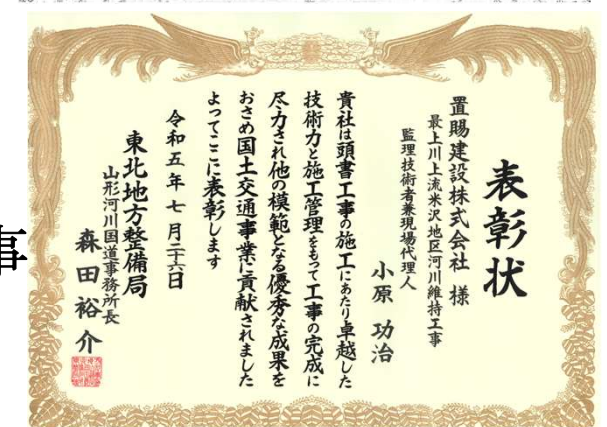 表彰状
置賜建設株式会社 様
最上川上流米沢地区河川維持工事
監理技術者兼現場代理人
小原 功治
貴社は頭書工事の施工にあたり卓越した
技術力と施工管理をもって工事の完成に
尽力され他の模範となる優秀な成果を
おさめ国土交通事業に貢献されました
よってここに表彰します
令和五年七月二十六日
東北地方整備局
山形河川国道事務所長
森田 裕介
事